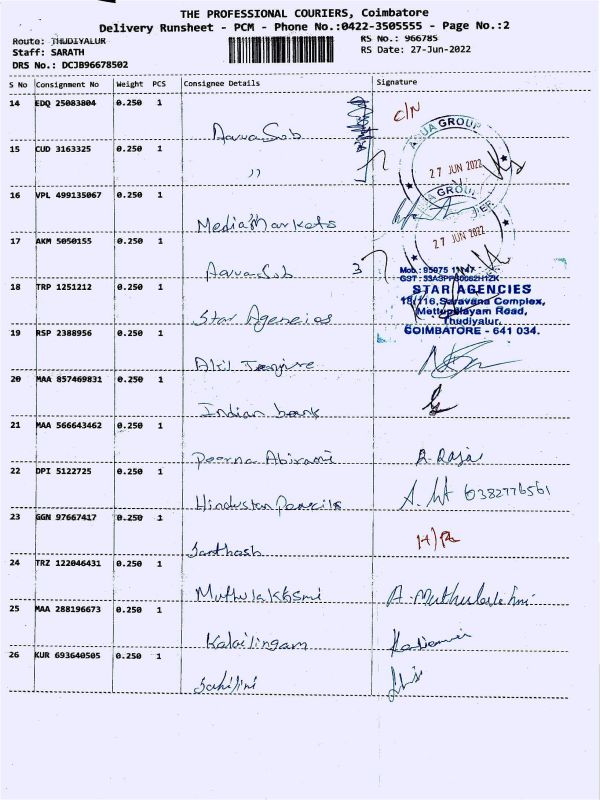 THE PROFESSIONAL COURIERS, Coimbatore
Delivery Runsheet - PCM - Phone No.:0422-3505555 - Page No.:2
Route: THUDIYALUR
RS No.: 966785
Staff: SARATH
RS Date: 27-Jun-2022
DRS No.: DCJB96678502
S No Consignment No Weight PCS Consignee Details Signature
14 EDQ 25083804 0.250 1 C/N
AQUA GROUP
15 CUD 3163325 0.250 1
27 JUN 2022
"
16 VPL 499135067 0.250 1
GROUP
Media Markets
17 AKM 5050155 0.250 1
27 JUN 2022
3
Mob.: 95975
18 TRP 1251212 0.250 1
STAR AGENCIES
18/116, Saravana Complex,
Star Agencies
Mettupalayam Road,
Thudiyalur,
19 RSP 2388956 0.250 1
COIMBATORE - 641 034.
Akil
20 MAA 857469831 0.250 1
Indian bank
21 MAA 566643462 0.250 1
Poorna Abirami R. Raja
22 DPI 5122725 0.250 1
Hindustan Pencils 6382776561
23 GGN 97667417 0.250 1
Santhosh
24 TRZ 122046431 0.250 1
Muthulakshmi A. Muthulakshmi
25 MAA 288196673 0.250 1
Kalailingam
26 KUR 693640505 0.250 1